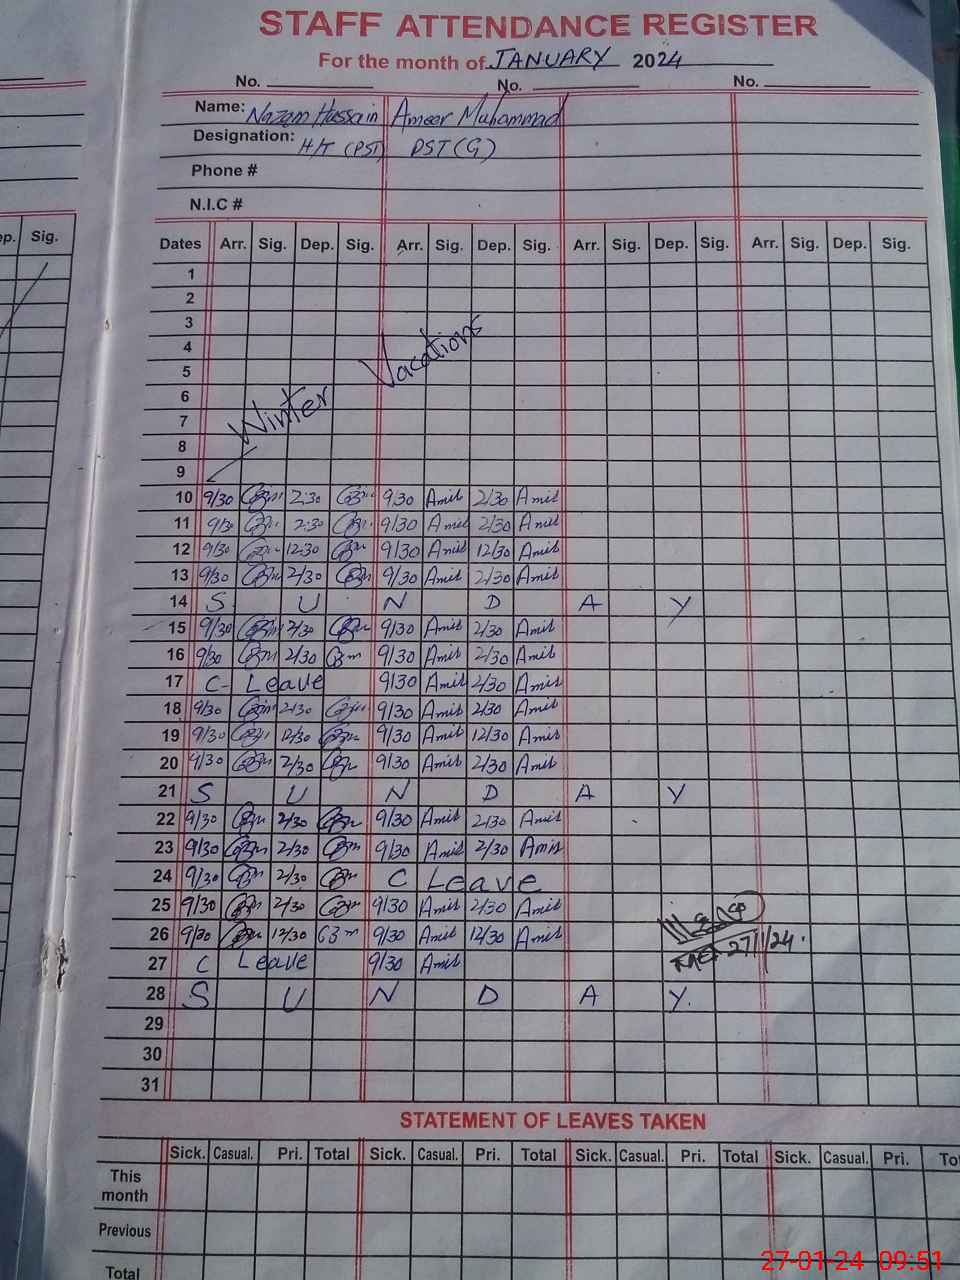 STAFF ATTENDANCE REGISTER
For the month of JANUARY 2024
No. No. No.
Name: Nazam Hussain Ameer Muhammad
Designation: H/T (PST) PST (G)
Phone #
N.I.C #
ep. Sig. Dates Arr. Sig. Dep. Sig. Arr. Sig. Dep. Sig. Arr. Sig. Dep. Sig. Arr. Sig. Dep. Sig.
1
2
3
4
5
6
7
8
9
Winter Vacations
10 9/30 2:30 9/30 Amil 2/30 Amil
11 9/30 2:30 9/30 Amil 2/30 Amil
12 9/30 12:30 9/30 Amil 12/30 Amil
13 9/30 2/30 9/30 Amil 2/30 Amil
14 S U N D A Y
15 9/30 2/30 9/30 Amil 2/30 Amil
16 9/30 2/30 9/30 Amil 2/30 Amil
17 C- Leave 9/30 Amil 2/30 Amil
18 9/30 2:30 9/30 Amil 2/30 Amil
19 9/30 12/30 9/30 Amil 12/30 Amil
20 9/30 2/30 9/30 Amil 2/30 Amil
21 S U N D A Y
22 9/30 2/30 9/30 Amil 2/30 Amil
23 9/30 2/30 9/30 Amil 2/30 Amil
24 9/30 2/30 C Leave
25 9/30 2/30 9/30 Amil 2/30 Amil
26 9/30 12/30 9/30 Amil 12/30 Amil
27 C Leave 9/30 Amil
27/1/24.
28 S U N D A Y.
29
30
31
STATEMENT OF LEAVES TAKEN
Sick. Casual. Pri. Total Sick. Casual. Pri. Total Sick. Casual. Pri. Total Sick. Casual. Pri. To
This month
Previous
Total
27-01-24 09:51